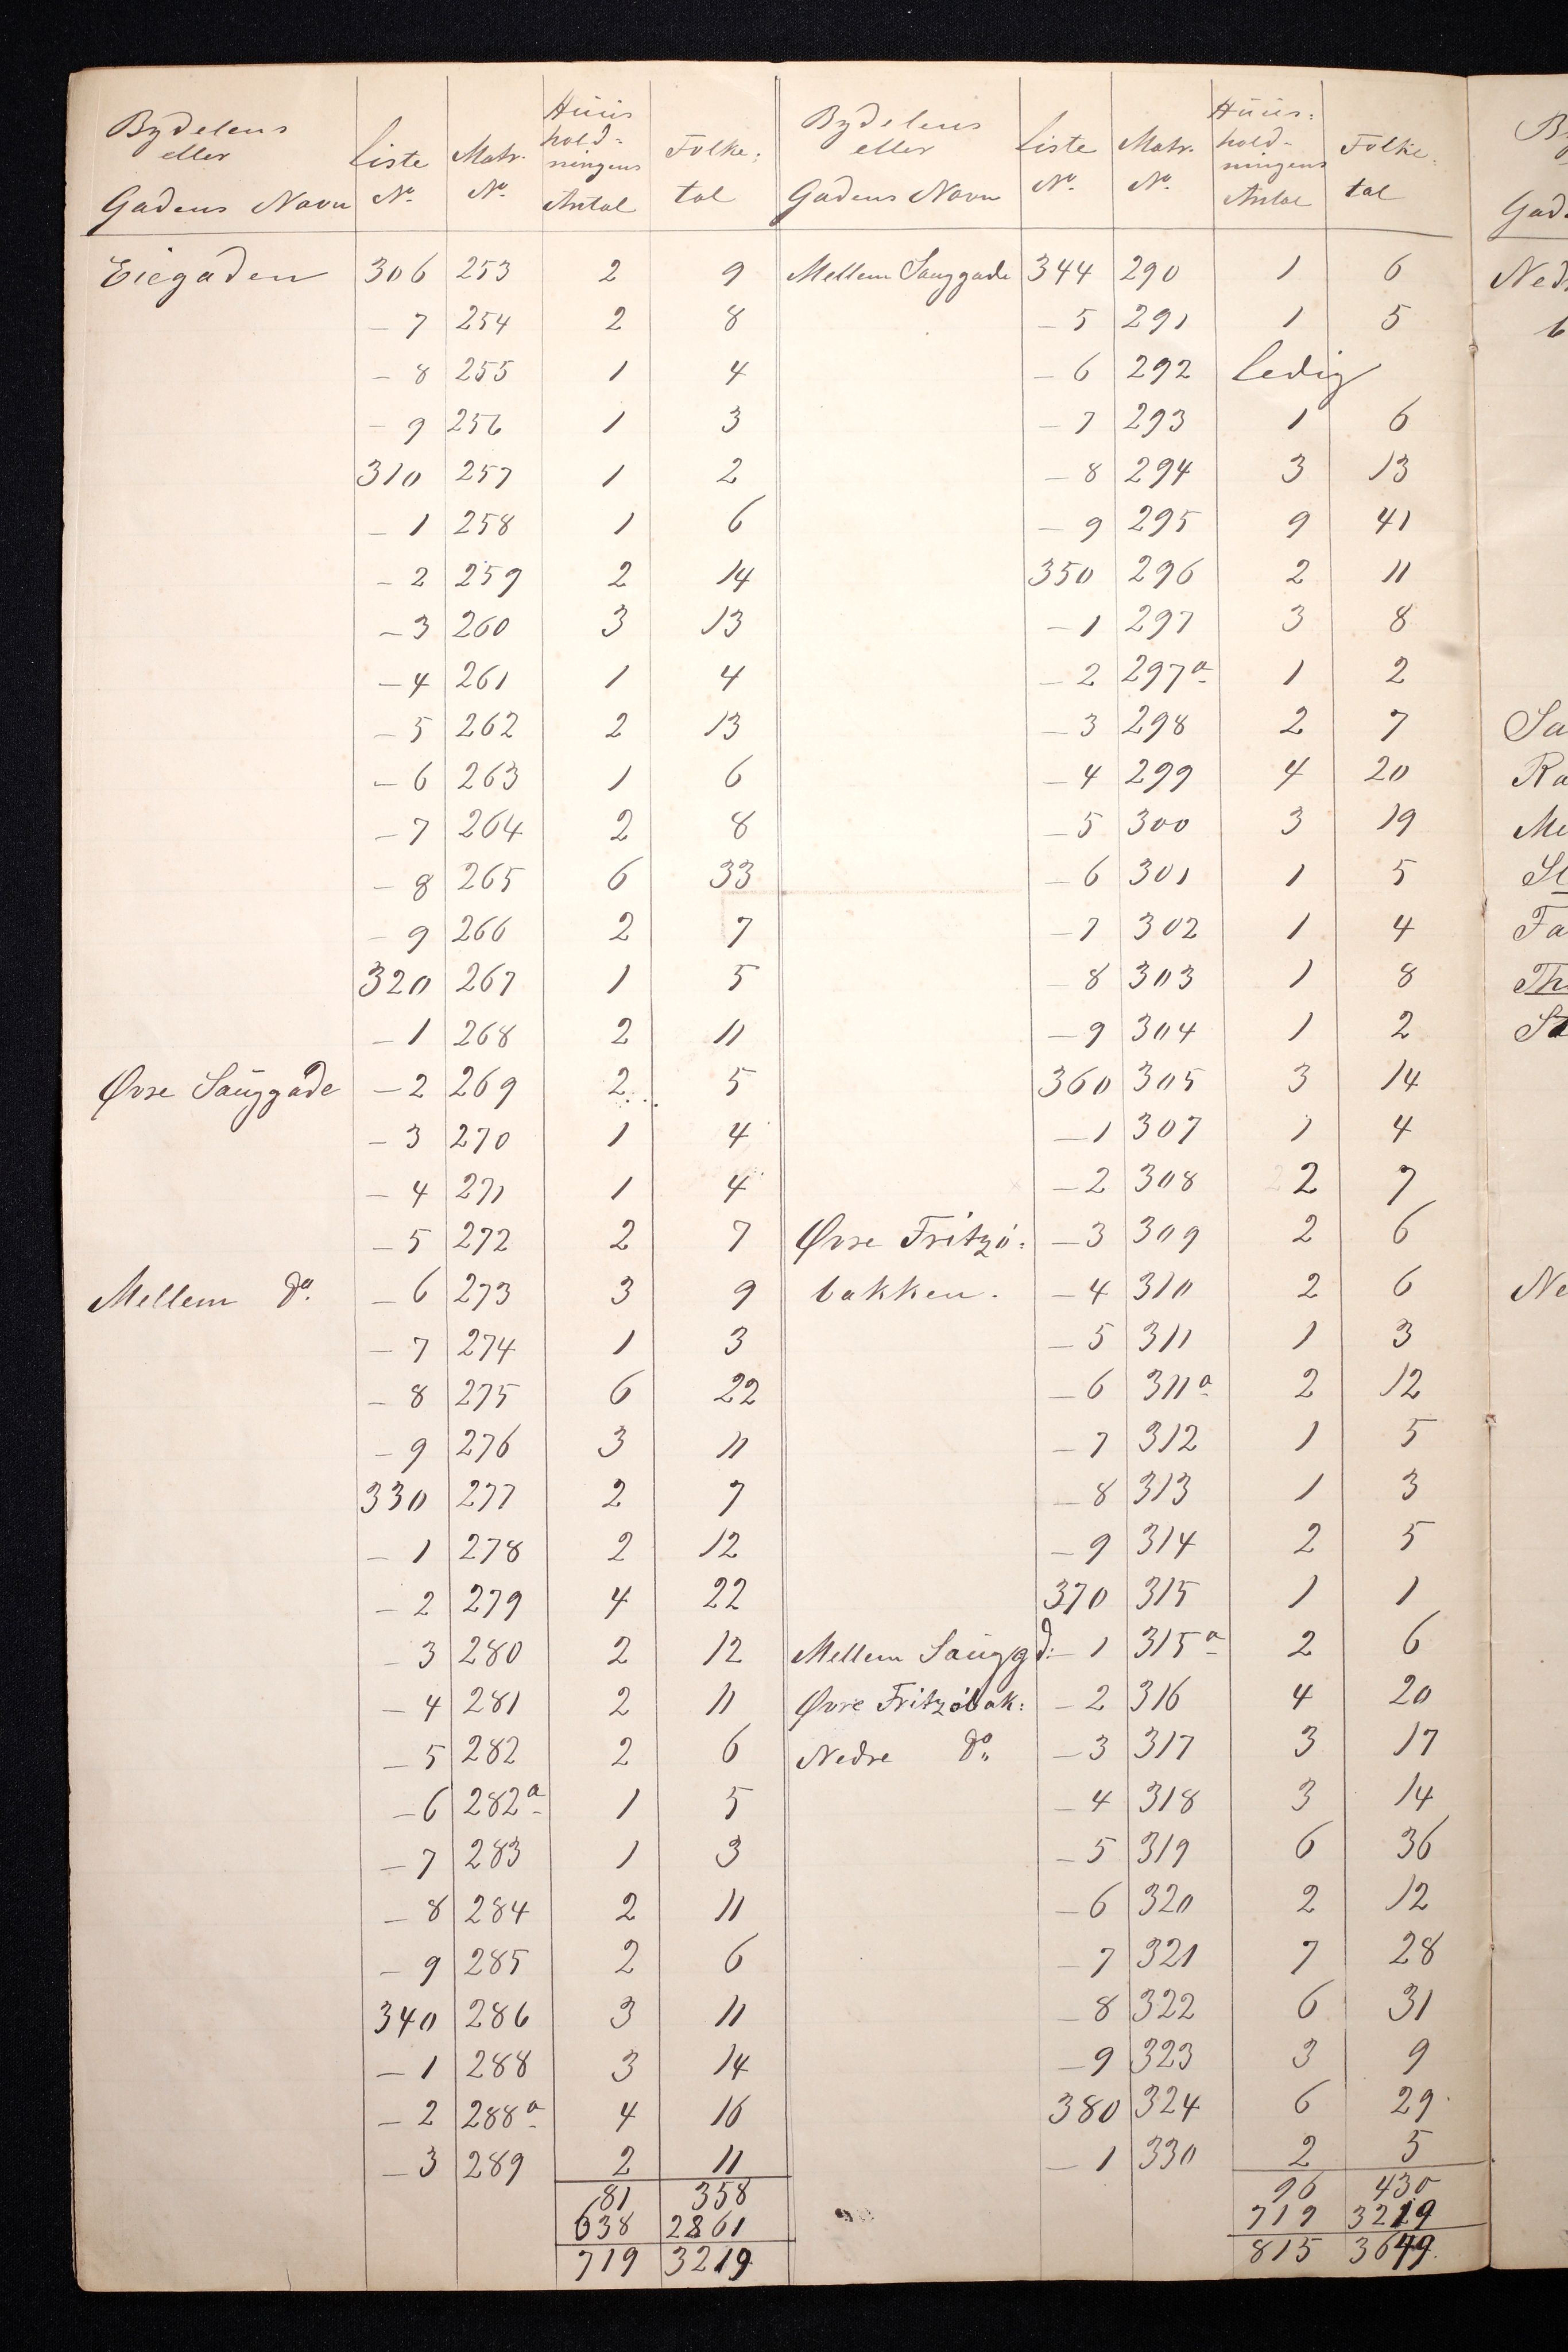 Bydelens eller Gadens Navn | Liste No. | Matr. No. | Huus hold- ningens Antal | Folke: tal
Eiegaden 306 253 2 9
- 7 254 2 8
- 8 255 1 4
- 9 256 1 3
310 257 1 2
- 1 258 1 6
- 2 259 2 14
- 3 260 3 13
- 4 261 1 4
- 5 262 2 13
- 6 263 1 6
- 7 264 2 8
- 8 265 6 33
- 9 266 2 7
320 267 1 5
- 1 268 2 11
Øvre Sauggade - 2 269 2 5
- 3 270 1 4
- 4 271 1 4
- 5 272 2 7
Mellem do. - 6 273 3 9
- 7 274 1 3
- 8 275 6 22
- 9 276 3 11
330 277 2 7
- 1 278 2 12
- 2 279 4 22
- 3 280 2 12
- 4 281 2 11
- 5 282 2 6
- 6 282a 1 5
- 7 283 1 3
- 8 284 2 11
- 9 285 2 6
340 286 3 11
- 1 288 3 14
- 2 288a 4 16
- 3 289 2 11
81 358
638 2861
719 3219
Bydelens eller Gadens Navn | Liste No. | Matr. No. | Huus: hold- ningens Antal | Folke: tal
Mellem Sauggade 344 290 1 6
- 5 291 1 5
- 6 292 Ledig
- 7 293 1 6
- 8 294 3 13
- 9 295 9 41
350 296 2 11
- 1 297 3 8
- 2 297a 1 2
- 3 298 2 7
- 4 299 4 20
- 5 300 3 19
- 6 301 1 5
- 7 302 1 4
- 8 303 1 8
- 9 304 1 2
360 305 3 14
- 1 307 1 4
- 2 308 2 7
Øvre Fritzö: - 3 309 2 6
bakken. - 4 310 2 6
- 5 311 1 3
- 6 311a 2 12
- 7 312 1 5
- 8 313 1 3
- 9 314 2 5
370 315 1 1
Mellem Sauggd: - 1 315a 2 6
Øvre Fritzöbak: - 2 316 4 20
Nedre do. - 3 317 3 17
- 4 318 3 14
- 5 319 6 36
- 6 320 2 12
- 7 321 7 28
- 8 322 6 31
- 9 323 3 9
380 324 6 29
- 1 330 2 5
96 430
719 3219
815 3649
By
Gad
Ned
b
Sa
Ra
Me
St
Fa
Th
St
Ne